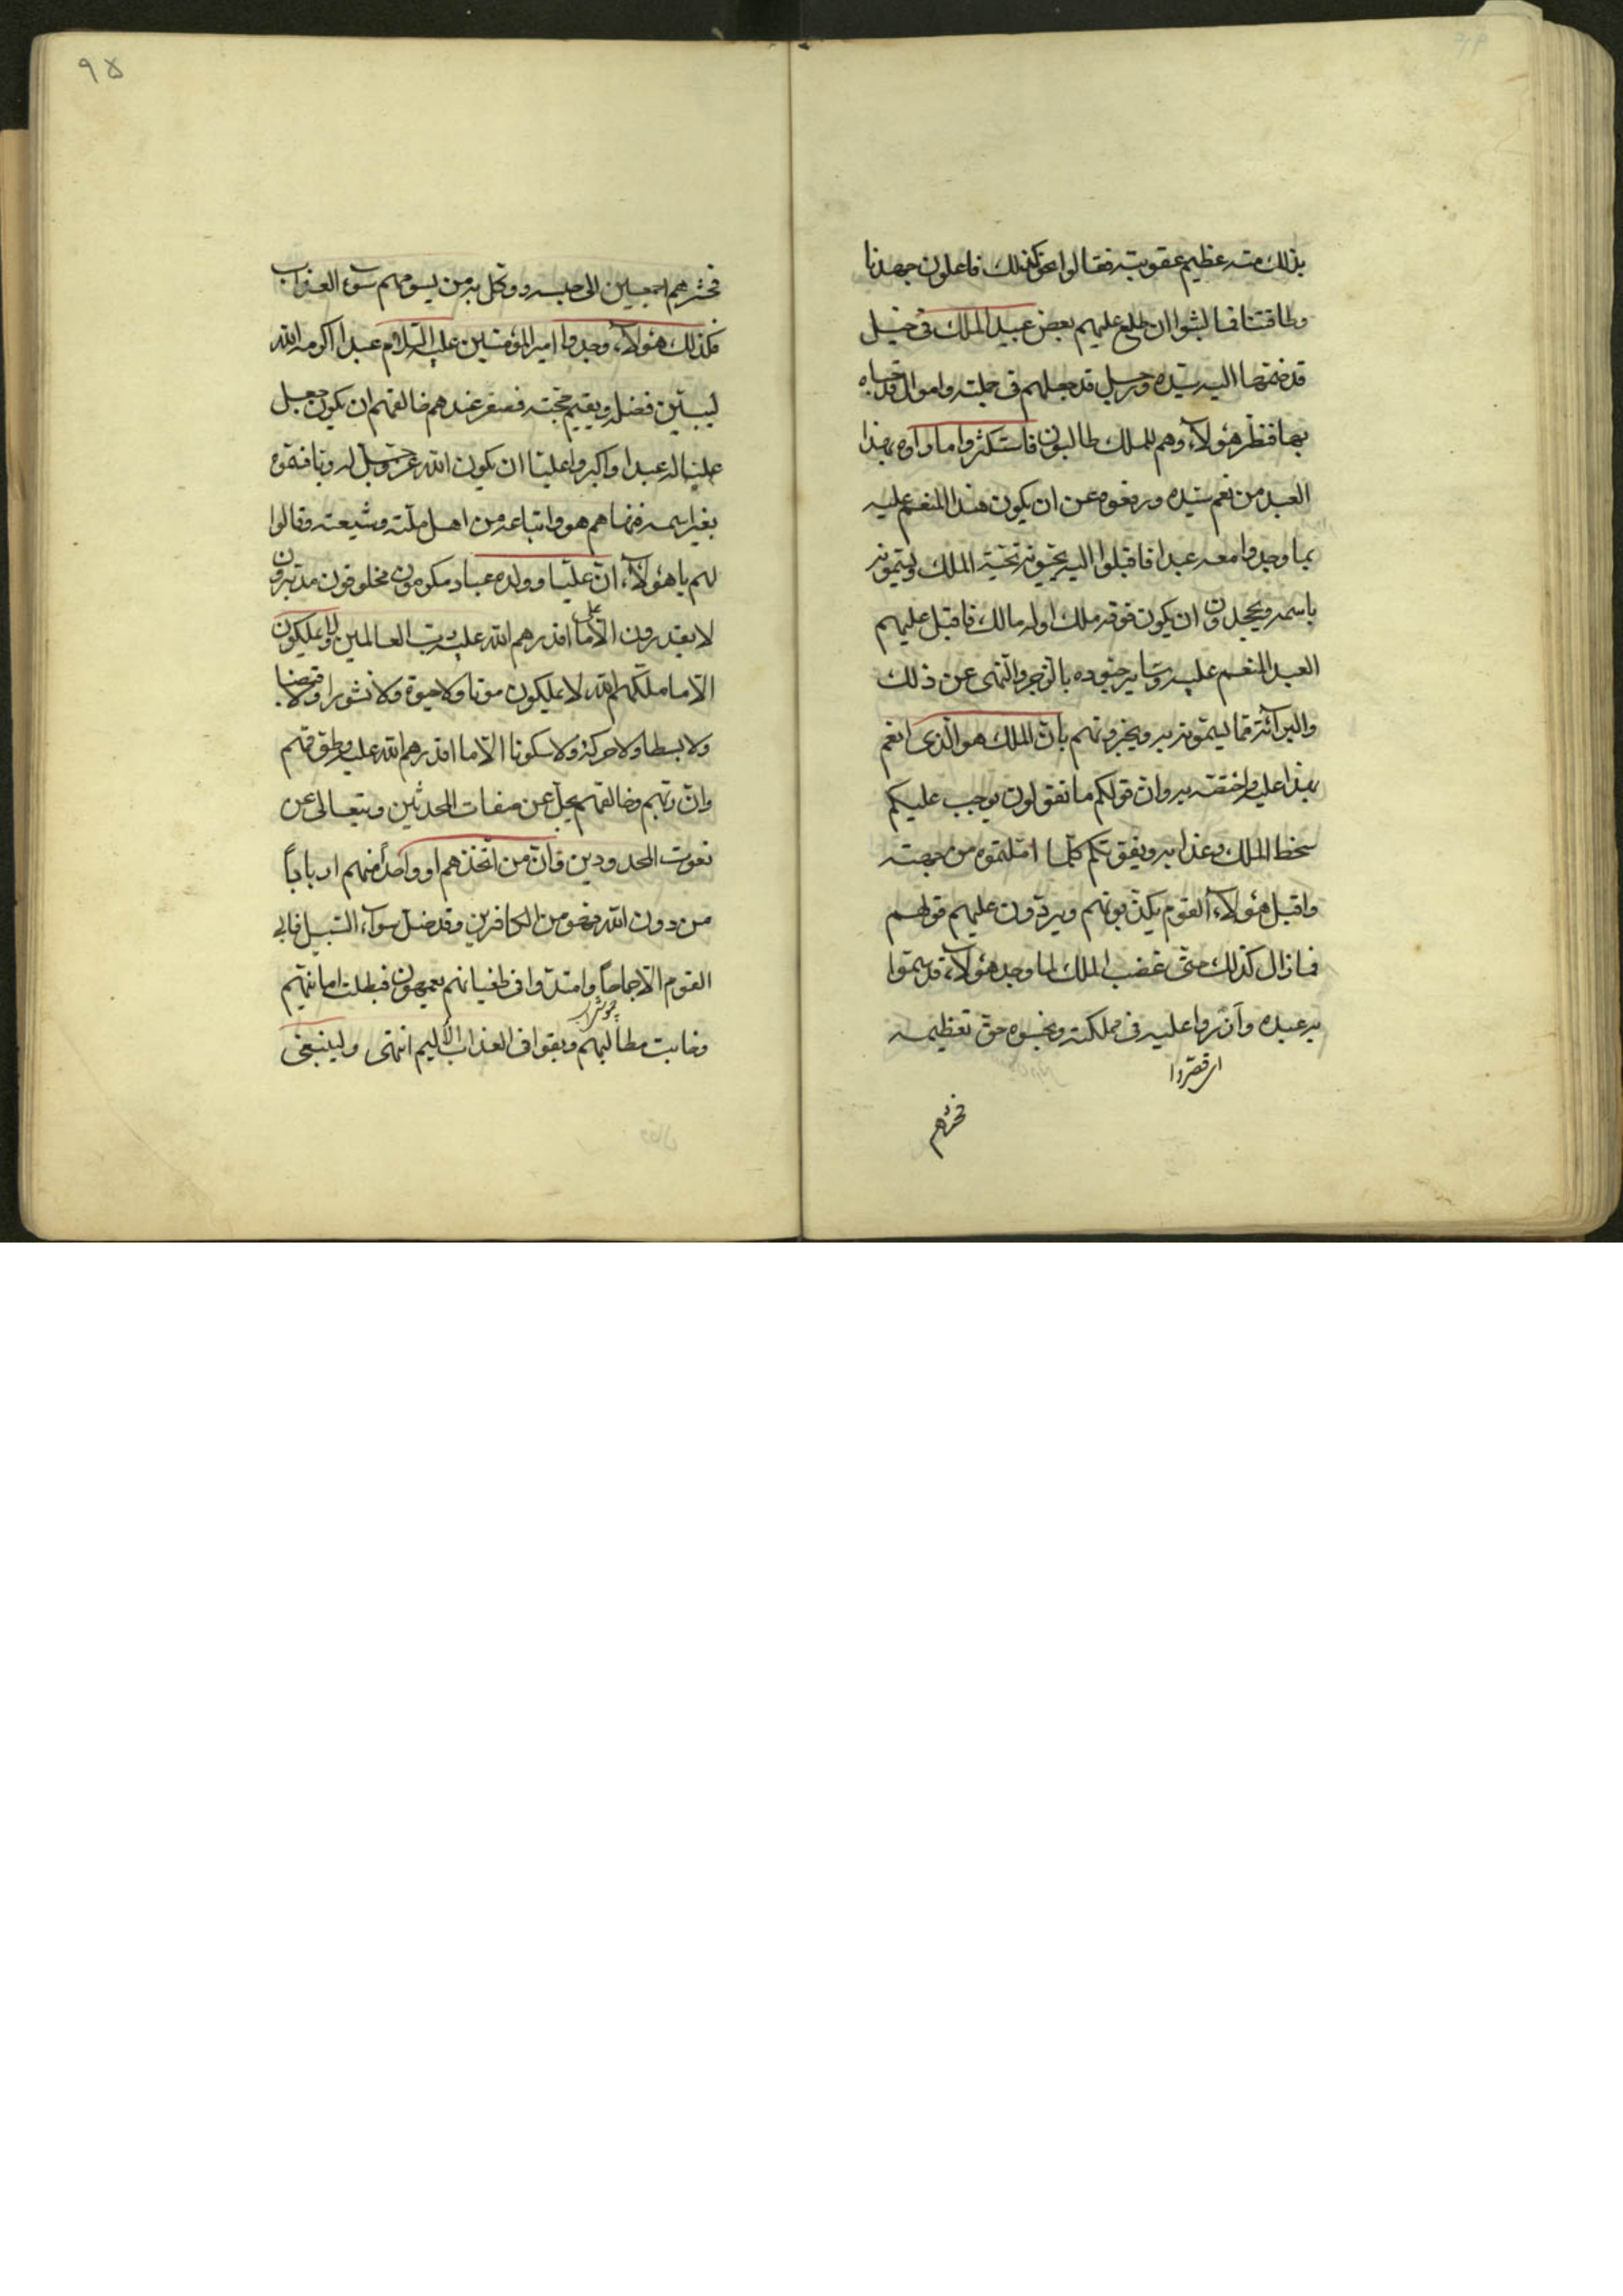 بذلك منه عظيم عقوبته فقالوا نحن كذلك فاعلون جهدنا
وطاقتنا فما لبثوا ان طلع عليهم بعض عبيد الملك في خيل
قد ضمها اليه سيده ورجل قد جعلهم في جملته واموال قد حباه
بها فنظر هؤلاء وهم للملك طالبون فاستكثروا ما راوه بهذا
العبد من نعم سيده ورفعوه عن ان يكون هذا المنعم عليه
بما وجدوا معه عبدا فاقبلوا اليه يحيونه تحية الملك ويسمونه
باسمه ويجحدون ان يكون فوقه ملك او له مالك فاقبل عليهم
العبد المنعم عليه وساير جنوده بالزجر والنهى عن ذلك
والبرائة مما يسمونه به ويخبرونهم بان الملك هو الذى انعم
بهذا عليه واختصه به وان قولكم ما تقولون يوجب عليكم
سخط الملك وعذابه ويفوتكم كلما املتموه من جهته
واقبل هؤلاء القوم يكذبونهم ويردون عليهم قولهم
فما زال كذلك حتى غضب الملك لما وجد هؤلاء قد سموا
به عبده وازروا عليه في مملكته وبخسوه حق تعظيمه
اى قصروا
فحشرهم
٩٥
فحشرهم اجمعين الى حبسه ووكل بهم من يسومهم سوء العذاب
فكذلك هؤلاء وجدوا امير المؤمنين عليه السلام عبدا اكرمه الله
ليبين فضله ويقيم حجته فصغر عندهم خالقهم ان يكون جعل
عليا له عبدا واكبروا عليا ان يكون الله عز وجل له ربا فسموه
بغير اسمه فنهاهم هو واتباعه من اهل ملته وشيعته وقالوا
لهم يا هؤلاء ان عليا وولده عباد مكرمون مخلوقون مدبرون
لا يقدرون الا على ما اقدرهم الله عليه رب العالمين ولا يملكون
الا ما ملكهم الله لا يملكون موتا ولا حيوة ولا نشورا ولا قبضا
ولا بسطا ولا حركة ولا سكونا الا ما اقدرهم الله عليه وطوقهم
وان ربهم وخالقهم يجل عن صفات المحدثين ويتعالى عن
نعوت المحدودين فان من اتخذهم او واحدا منهم اربابا
من دون الله فهو من الكافرين وقد ضل سواء السبيل فابى
القوم الا جماحا وامتدوا فى طغيانهم يعمهون فبطلت امانيهم
وخابت مطالبهم وبقوا فى العذاب الاليم انتهى ولينبغى